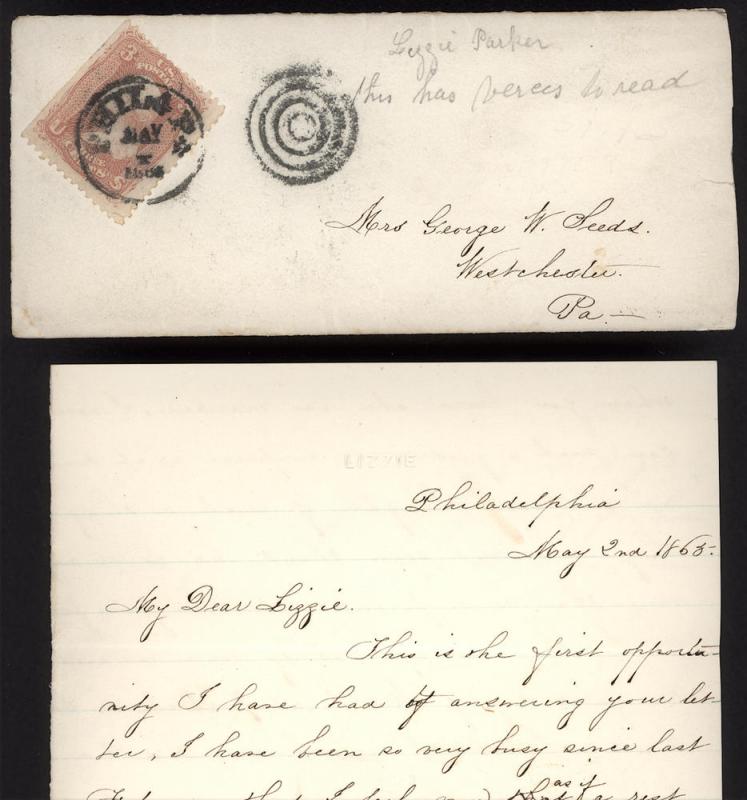 Lizzie Parker
this has verces to read
3
U.S.
POSTAGE
PHILA PA
MAY
1865
U
S
Mrs George W. Seeds.
Westchester.
Pa —
LIZZIE
Philadelphia
May 2nd 1865.
My Dear Lizzie.
This is the first opportu-
nity I have had of answering your let-
ter, I have been so very busy since last
that I feel as if a rest